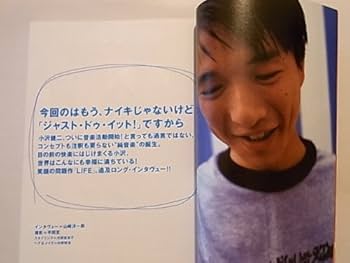 今回のはもう、ナイキじゃないけど
「ジャスト・ドゥ・イット!」ですから
小沢健二、ついに音楽活動開始!と言っても過言ではない、
コンセプトも注釈も要らない"純音楽"の誕生。
目の前の快楽にはじけまくる小沢、
世界はこんなにも幸福に満ちている!
笑顔の問題作『LIFE』、追及ロング・インタヴュー!!
インタヴュー=山崎洋一郎
撮影=平間至